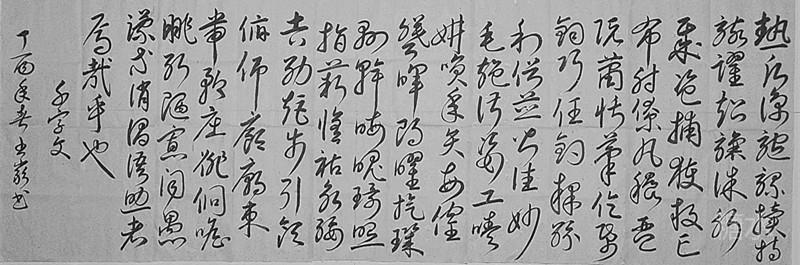 熱願涼驢騾犢特
駭躍超驤誅斬
賊盜捕獲叛亡
布射僚丸嵇琴
阮嘯恬筆倫紙
鈞巧任釣釋紛
利俗並皆佳妙
毛施淑姿工顰
妍笑年矢每催
曦暉朗曜旋璣
懸斡晦魄環照
指薪修祜永綏
吉劭矩步引領
俯仰廊廟束
帶矜莊徘徊瞻
眺孤陋寡聞愚
蒙等誚謂語助者
焉哉乎也
千字文
丁酉年春